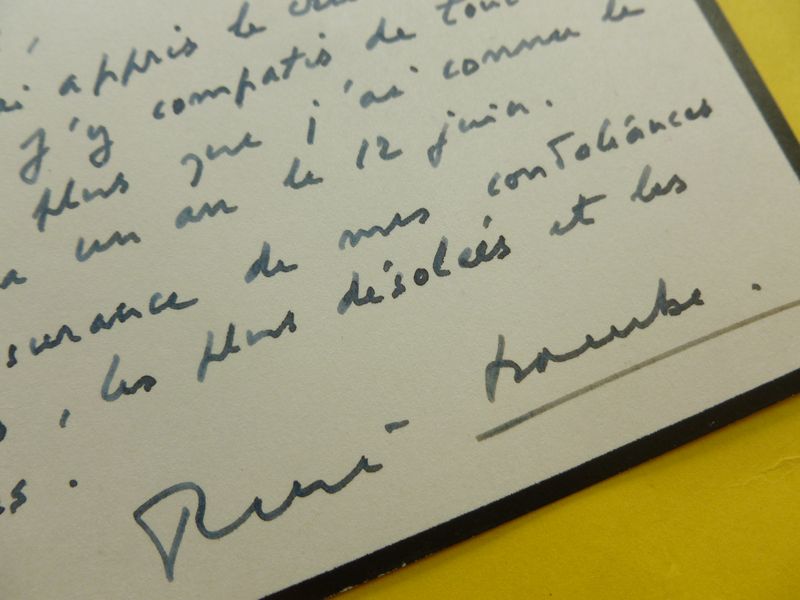 appris le
j'y compatis de tout
plus que j'ai connu le
un an le 12 juin.
surance de mes condoléances
, les plus désolées et les
René